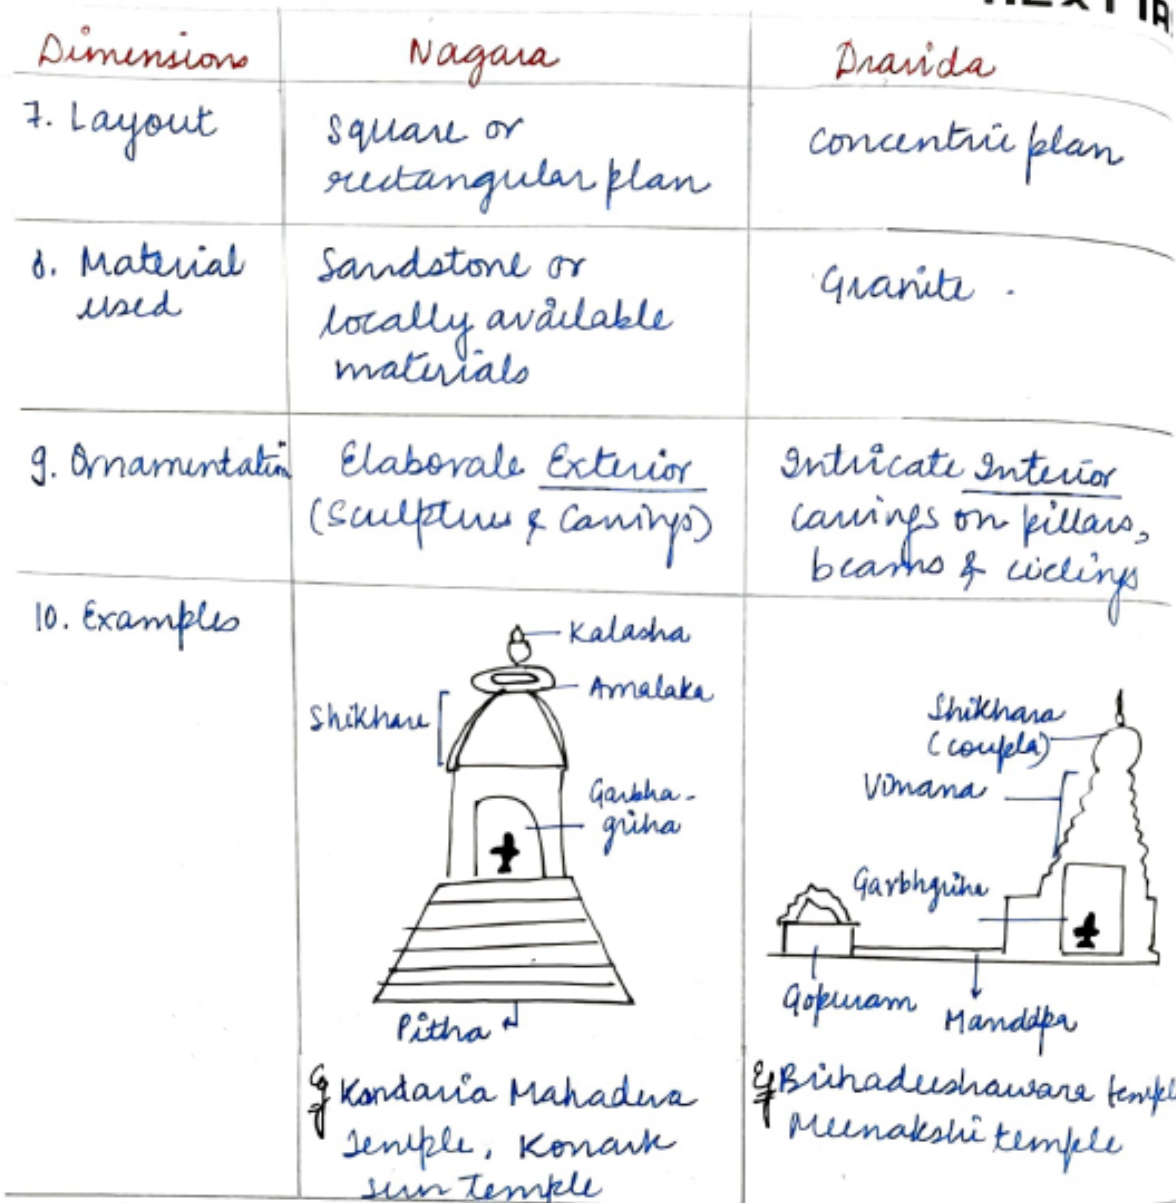 NEXT IA
Dimensions
Nagara
Dravida
7. Layout
square or
rectangular plan
concentric plan
8. Material
used
Sandstone or
locally available
materials
Granite .
9. Ornamentation
Elaborate Exterior
(Sculptures & Carvings)
Intricate Interior
carvings on pillars,
beams & cielings
10. Examples
Kalasha
Amalaka
Shikhara
Garbha-
griha
Pitha
Eg Kandaria Mahadeva
Temple, Konark
sun Temple
Shikhara
(coupla)
Vimana
Garbhgriha
Gopuram
Manddpa
Eg Brihadeeshaware temple
Meenakshi temple